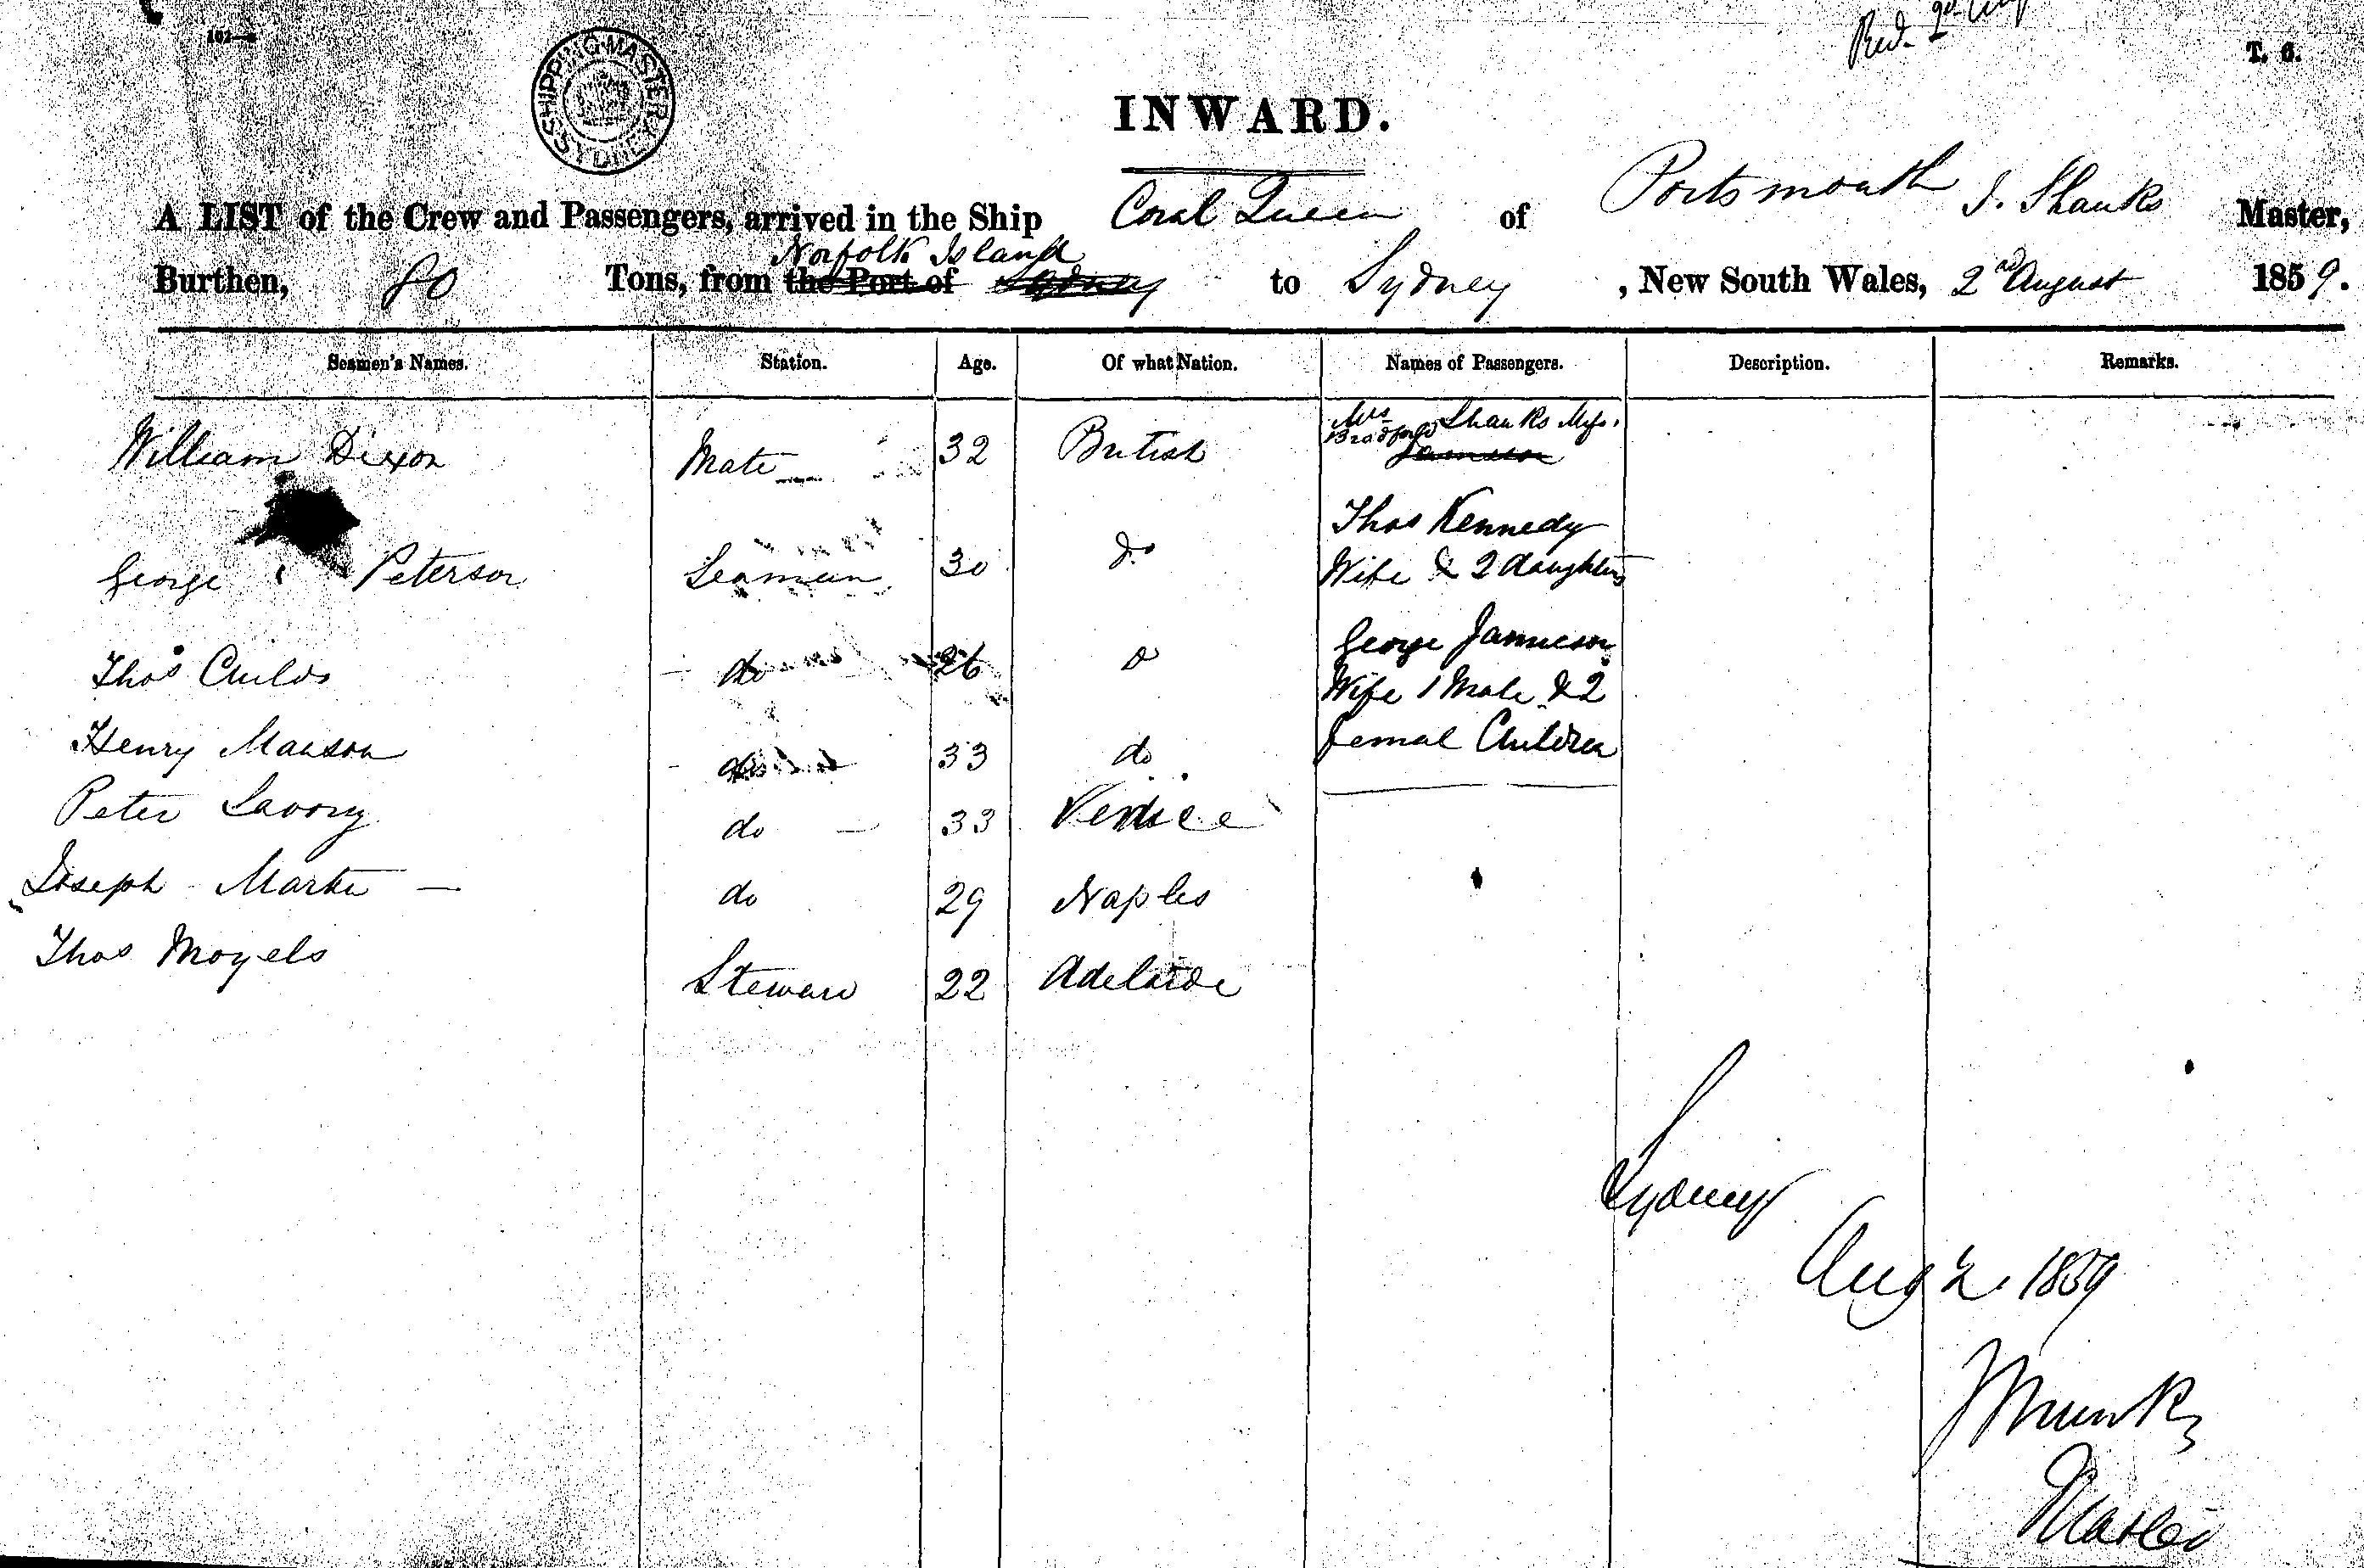 102—
SHIPPING MASTER SYDNEY
Recd. 2nd Aug
T. 6.
INWARD.
A LIST of the Crew and Passengers, arrived in the Ship Coral Queen of Portsmouth J. Shanks Master,
Norfolk Island
Burthen, 80 Tons, from the Port of Sydney to Sydney , New South Wales, 2nd August 1859.
Seamen's Names. Station. Age. Of what Nation. Names of Passengers. Description. Remarks.
William Dixon Mate 32 British Mrs Shanks
Bradford
Jamieson
Thos Kennedy
George Peterson Seaman 30 Do Wife & 2 daughters
George Jammieson
Thos Childs do 26 Wife 1 Male & 2
Henry Manson do 33 do Femal Children
Peter Savory do 33 Venice
Joseph Marke do 29 Naples
Thos Moyels Steward 22 Adelaide
Sydney
Aug 2. 1859
J Shanks
Master